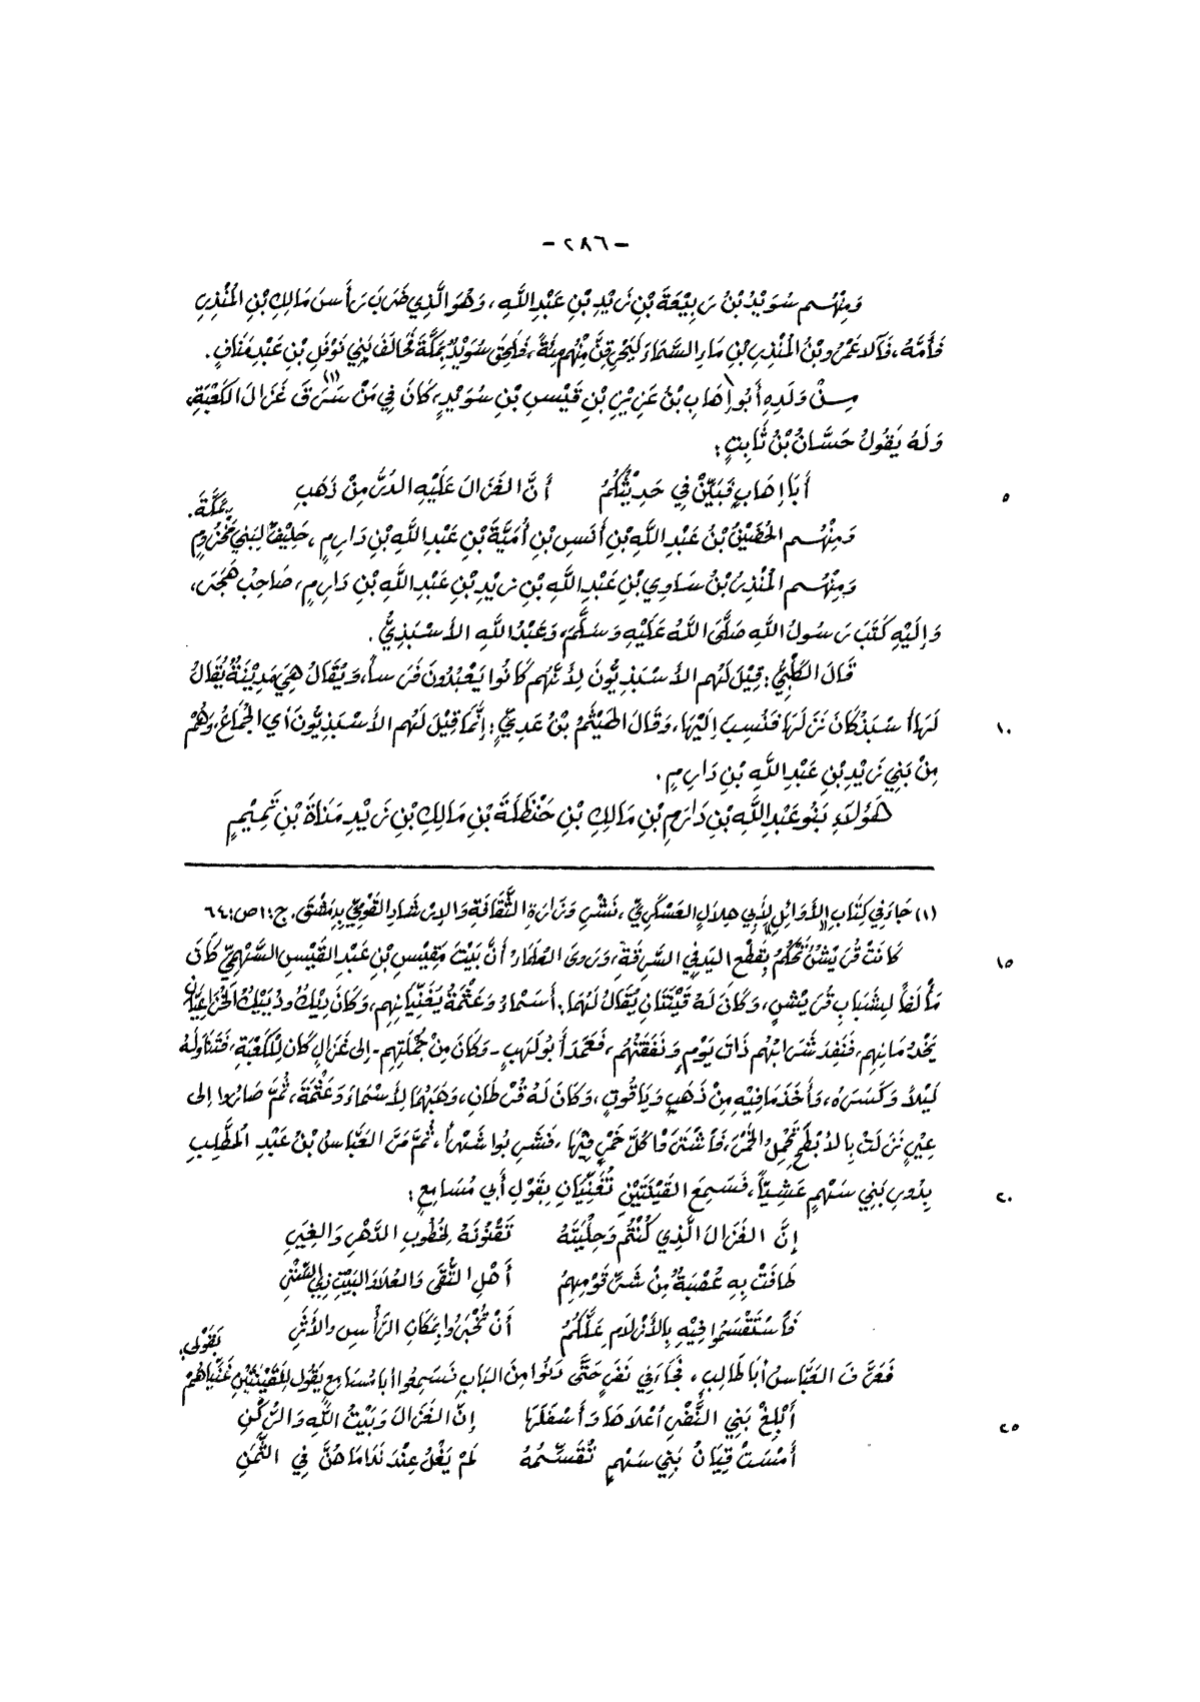 - ٢٨٦ -
وَمِنْهُم سُوَيْدُ بْنُ رَبِيْعَةَ بْنِ زَيْدِ بْنِ عَبْدِ اللَّهِ، وَهُوَ الَّذِي ضَرَبَ رَأْسَ مَالِكِ بْنِ الْمُنْذِرِ
فَأَمَّهُ، فَآلَا عَمْرُو بْنُ الْمُنْذِرِ بْنِ مَاءِ السَّمَاءِ لَيُحْرِقَنَّ مِنْهُم مِئَةً، فَلَحِقَ سُوَيْدٌ بِمَكَّةَ فَحَالَفَ بَنِي نَوْفَلِ بْنِ عَبْدِ مَنَافٍ.
مِنْ وَلَدِهِ أَبُو إِهَابِ بْنُ عَزِيْزِ بْنِ قَيْسِ بْنِ سُوَيْدٍ، كَانَ فِي مَنْ سَرَقَ (١) غَزَالَ الْكَعْبَةِ،
وَلَهُ يَقُولُ حَسَّانُ بْنُ ثَابِتٍ:
٥ أَبَا إِهَابٍ فَبَيِّنْ فِي حَدِيْثِكُمُ أَنَّ الغَزَالَ عَلَيْهِ الدُّرُّ مِنْ ذَهَبِ
وَمِنْهُم الحُضَيْنُ بْنُ عَبْدِ اللَّهِ بْنِ أَنَسِ بْنِ أُمَيَّةَ بْنِ عَبْدِ اللَّهِ بْنِ دَارِمٍ، حَلِيْفٌ لِبَنِي مَخْزُومٍ بِمَكَّةَ.
وَمِنْهُم الْمُنْذِرُ بْنُ سَاوِي بْنِ عَبْدِ اللَّهِ بْنِ زَيْدِ بْنِ عَبْدِ اللَّهِ بْنِ دَارِمٍ، صَاحِبُ هَجَرَ،
وَإِلَيْهِ كَتَبَ رَسُولُ اللَّهِ صَلَّى اللَّهُ عَلَيْهِ وَسَلَّمَ، وَعَبْدُ اللَّهِ الأَسْبَذِيُّ.
قَالَ الكَلْبِيُّ: قِيْلَ لَهُم الأَسْبَذِيُّونَ لِأَنَّهُم كَانُوا يَعْبُدُونَ فَرَساً، وَيُقَالُ هِيَ مَدِيْنَةٌ يُقَالُ
١٠ لَهَا أَسْبَذُ كَانَ نَزَلَهَا فَنُسِبَ إِلَيْهَا، وَقَالَ الهَيْثَمُ بْنُ عَدِيٍّ: إِنَّمَا قِيْلَ لَهُم الأَسْبَذِيُّونَ أي الجُمَّاعُ، وَهُمْ
مِنْ بَنِي زَيْدِ بْنِ عَبْدِ اللَّهِ بْنِ دَارِمٍ.
هَؤُلَاءِ بَنُو عَبْدِ اللَّهِ بْنِ دَارِمِ بْنِ مَالِكِ بْنِ حَنْظَلَةَ بْنِ مَالِكِ بْنِ زَيْدِ مَنَاةَ بْنِ تَمِيْمٍ
(١) جَاءَ فِي كِتَابِ الأَوَائِلِ لِأَبِي هِلَالٍ العَسْكَرِيِّ، نَشْرِ وَزَارَةِ الثَّقَافَةِ وَالإِرْشَادِ القَوْمِيِّ بِدِمَشْقَ. ج: ١ ص: ٦٤
١٥ كَانَتْ قُرَيْشٌ تَحْكُمُ بِقَطْعِ اليَدِ فِي السَّرِقَةِ، وَرَوَى العُلَمَاءُ: أَنَّ بَيْتَ مَقِيْسِ بْنِ عَبْدِ القَيْسِ السَّهْمِيِّ كَانَ
مَأْلَفاً لِشَبَابِ قُرَيْشٍ، وَكَانَ لَهُ قَيْنَتَانِ يُقَالُ لَهُمَا: أَسْمَاءُ وَعَثْمَةُ يُغَنِّيَانِهِم، وَكَانَ دِيْكٌ وذُبَيْكٌ الخُزَاعِيَّانِ
يَخْدُمَانِهِم، فَنَفِدَ شَرَابُهُم ذَاتَ يَوْمٍ وَنَفَقَتُهُم، فَعَمَدَ أَبُو لَهَبٍ - وَكَانَ مِنْ جُمْلَتِهِم - إِلى غَزَالٍ كَانَ لِلْكَعْبَةِ، فَتَنَاوَلَهُ
لَيْلاً وَكَسَرَهُ، وَأَخَذَ مَا فِيْهِ مِنْ ذَهَبٍ وَيَاقُوتٍ، وَكَانَ لَهُ قُرْطَانِ، وَهَبَهُمَا لِأَسْمَاءَ وَعَثْمَةَ، ثُمَّ صَارُوا إِلى
عِيْرٍ نَزَلَتْ بِالأَبْطَحِ تَحْمِلُ الخَمْرَ، فَاشْتَرَوْا كُلَّ خَمْرٍ فِيْهَا، فَشَرِبُوا شَهْراً، ثُمَّ مَرَّ العَبَّاسُ بْنُ عَبْدِ الْمُطَّلِبِ
٢٠ بِدُورِ بَنِي سَهْمٍ عَشِيّاً، فَسَمِعَ القَيْنَتَيْنِ تُغَنِّيَانِ بِقَوْلِ أَبِي مُسَامِعٍ:
إِنَّ الغَزَالَ الَّذِي كُنْتُمْ وَحِلْيَتَهُ تَقْنُونَهُ لِخُطُوبِ الدَّهْرِ وَالغِيَرِ
طَافَتْ بِهِ عُصْبَةٌ مِنْ شَرِّ قَوْمِهِمُ أَهْلِ التُّقَى وَالعُلَا وَالبَيْتِ ذِي السُّتُرِ
فَاسْتَقْسَمُوا فِيْهِ بِالأَزْلَامِ عَلَّكُمُ أَنْ تُخْبَرُوا بِمَكَانِ الرَّأْسِ وَالأَثَرِ
فَعَرَّفَ العَبَّاسُ أَبَا طَالِبٍ، فَجَاءَ فِي نَفَرٍ حَتَّى دَنُوا مِنَ البَابِ فَسَمِعُوا أبا مُسَامِعٍ يَقُولُ لِلْقَيْنَتَيْنِ غَنِّيَاهُمْ بِقَوْلِي:
٢٥ أَبْلِغْ بَنِي النَّضْرِ أَعْلَاهَا وَأَسْفَلَهَا إِنَّ الغَزَالَ وَبَيْتُ اللَّهِ وَالرُّكْنِ
أَمْسَتْ قِيَانُ بَنِي سَهْمٍ تُقَسِّمُهُ لَمْ يَغْلُ عِنْدَ نَدَامَاهُنَّ فِي الثَّمَنِ